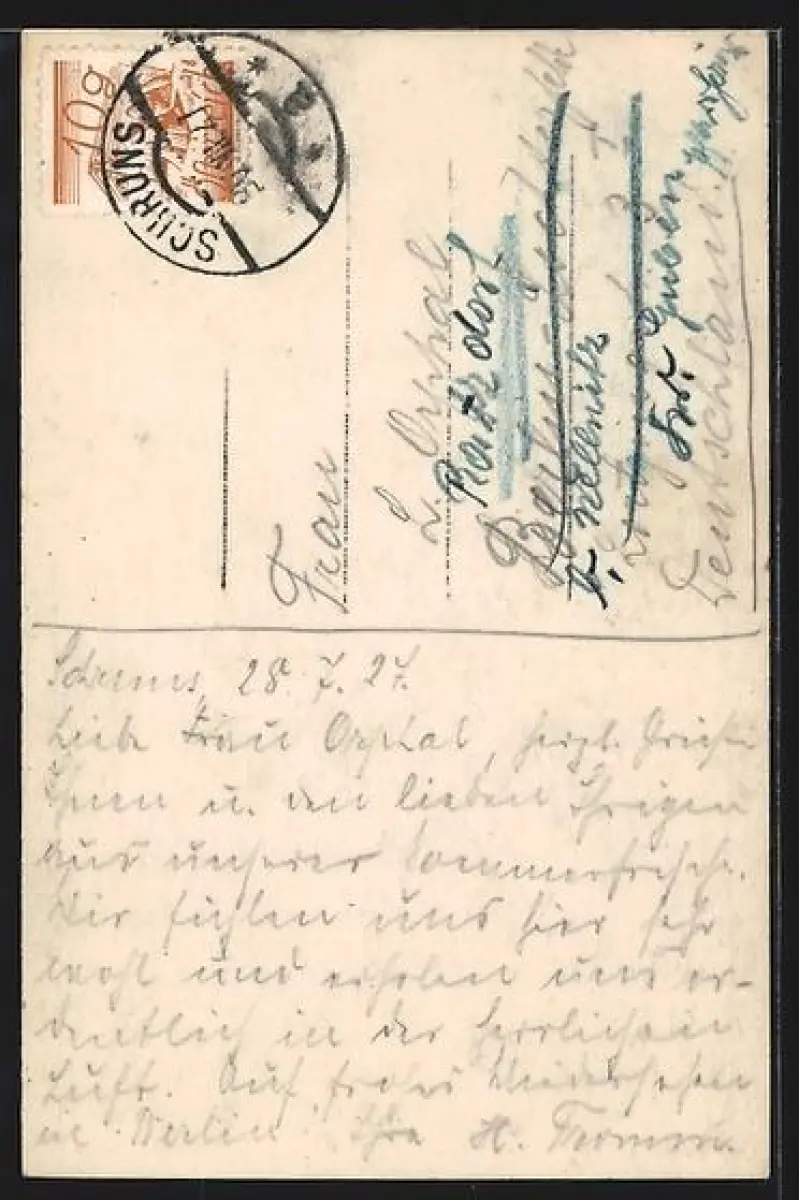 10g
SCHRUNS
* a *
Frau
L. Orphal
Ratzdorf
b. Wellmitz
Krs. Guben
Deutschland
Schruns, 28. 7. 27.
Liebe Frau Orphal, herzl. Grüße
Ihnen u. den lieben Ihrigen
aus unserer Sommerfrische.
Wir fühlen uns hier sehr
wohl und erholen uns or-
dentlich in der herrlichen
Luft. Auf frohes Wiedersehen
in Berlin Ihre H.